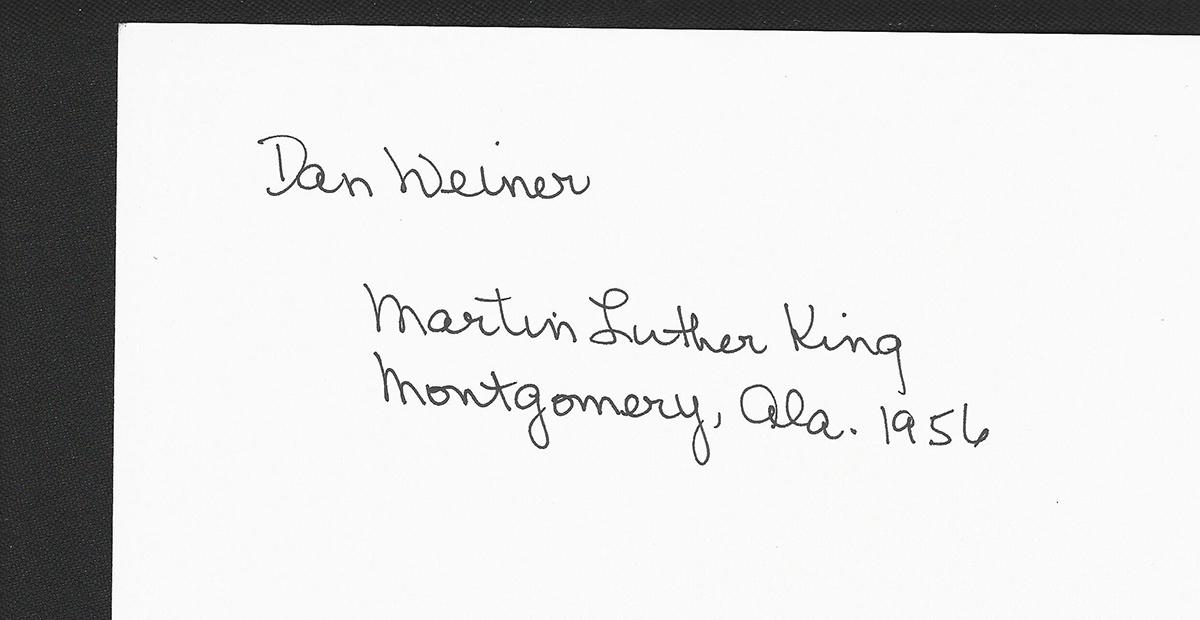 Dan Weiner
Martin Luther King
Montgomery, Ala. 1956